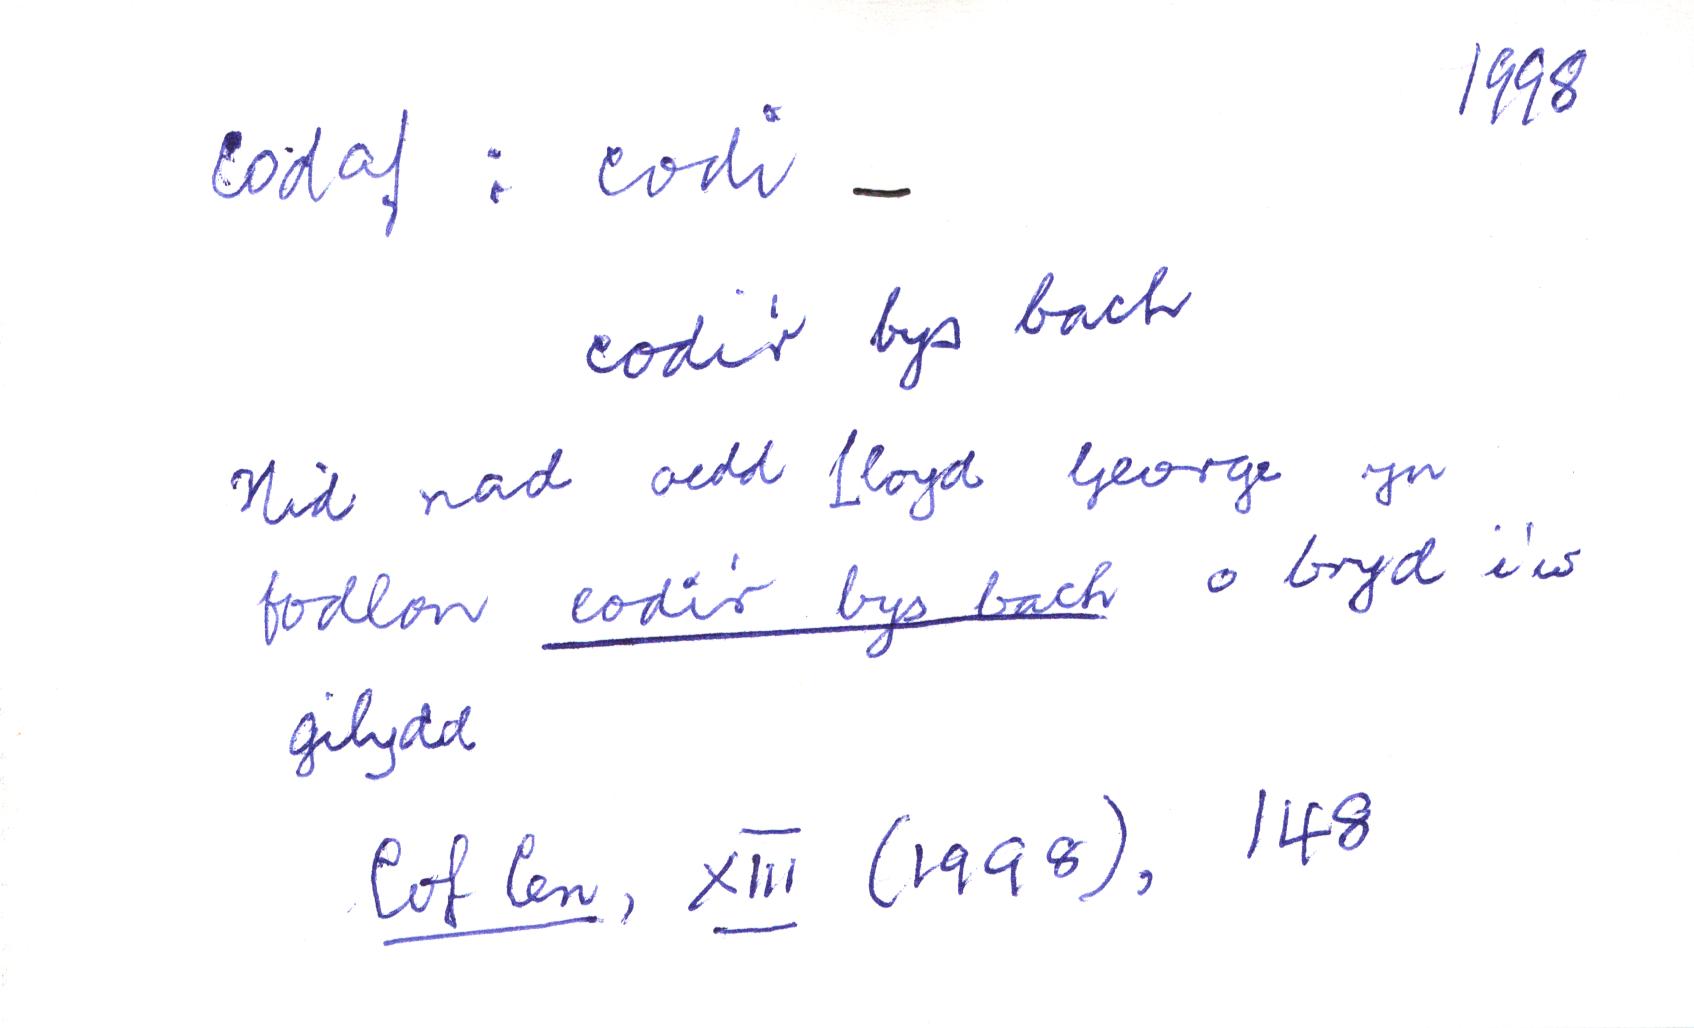 1998
codaf : codi –
codi'r bys bach
Nid nad oedd Lloyd George yn
fodlon codi'r bys bach o bryd i'w
gilydd
Cof Cen, XIII (1998), 148